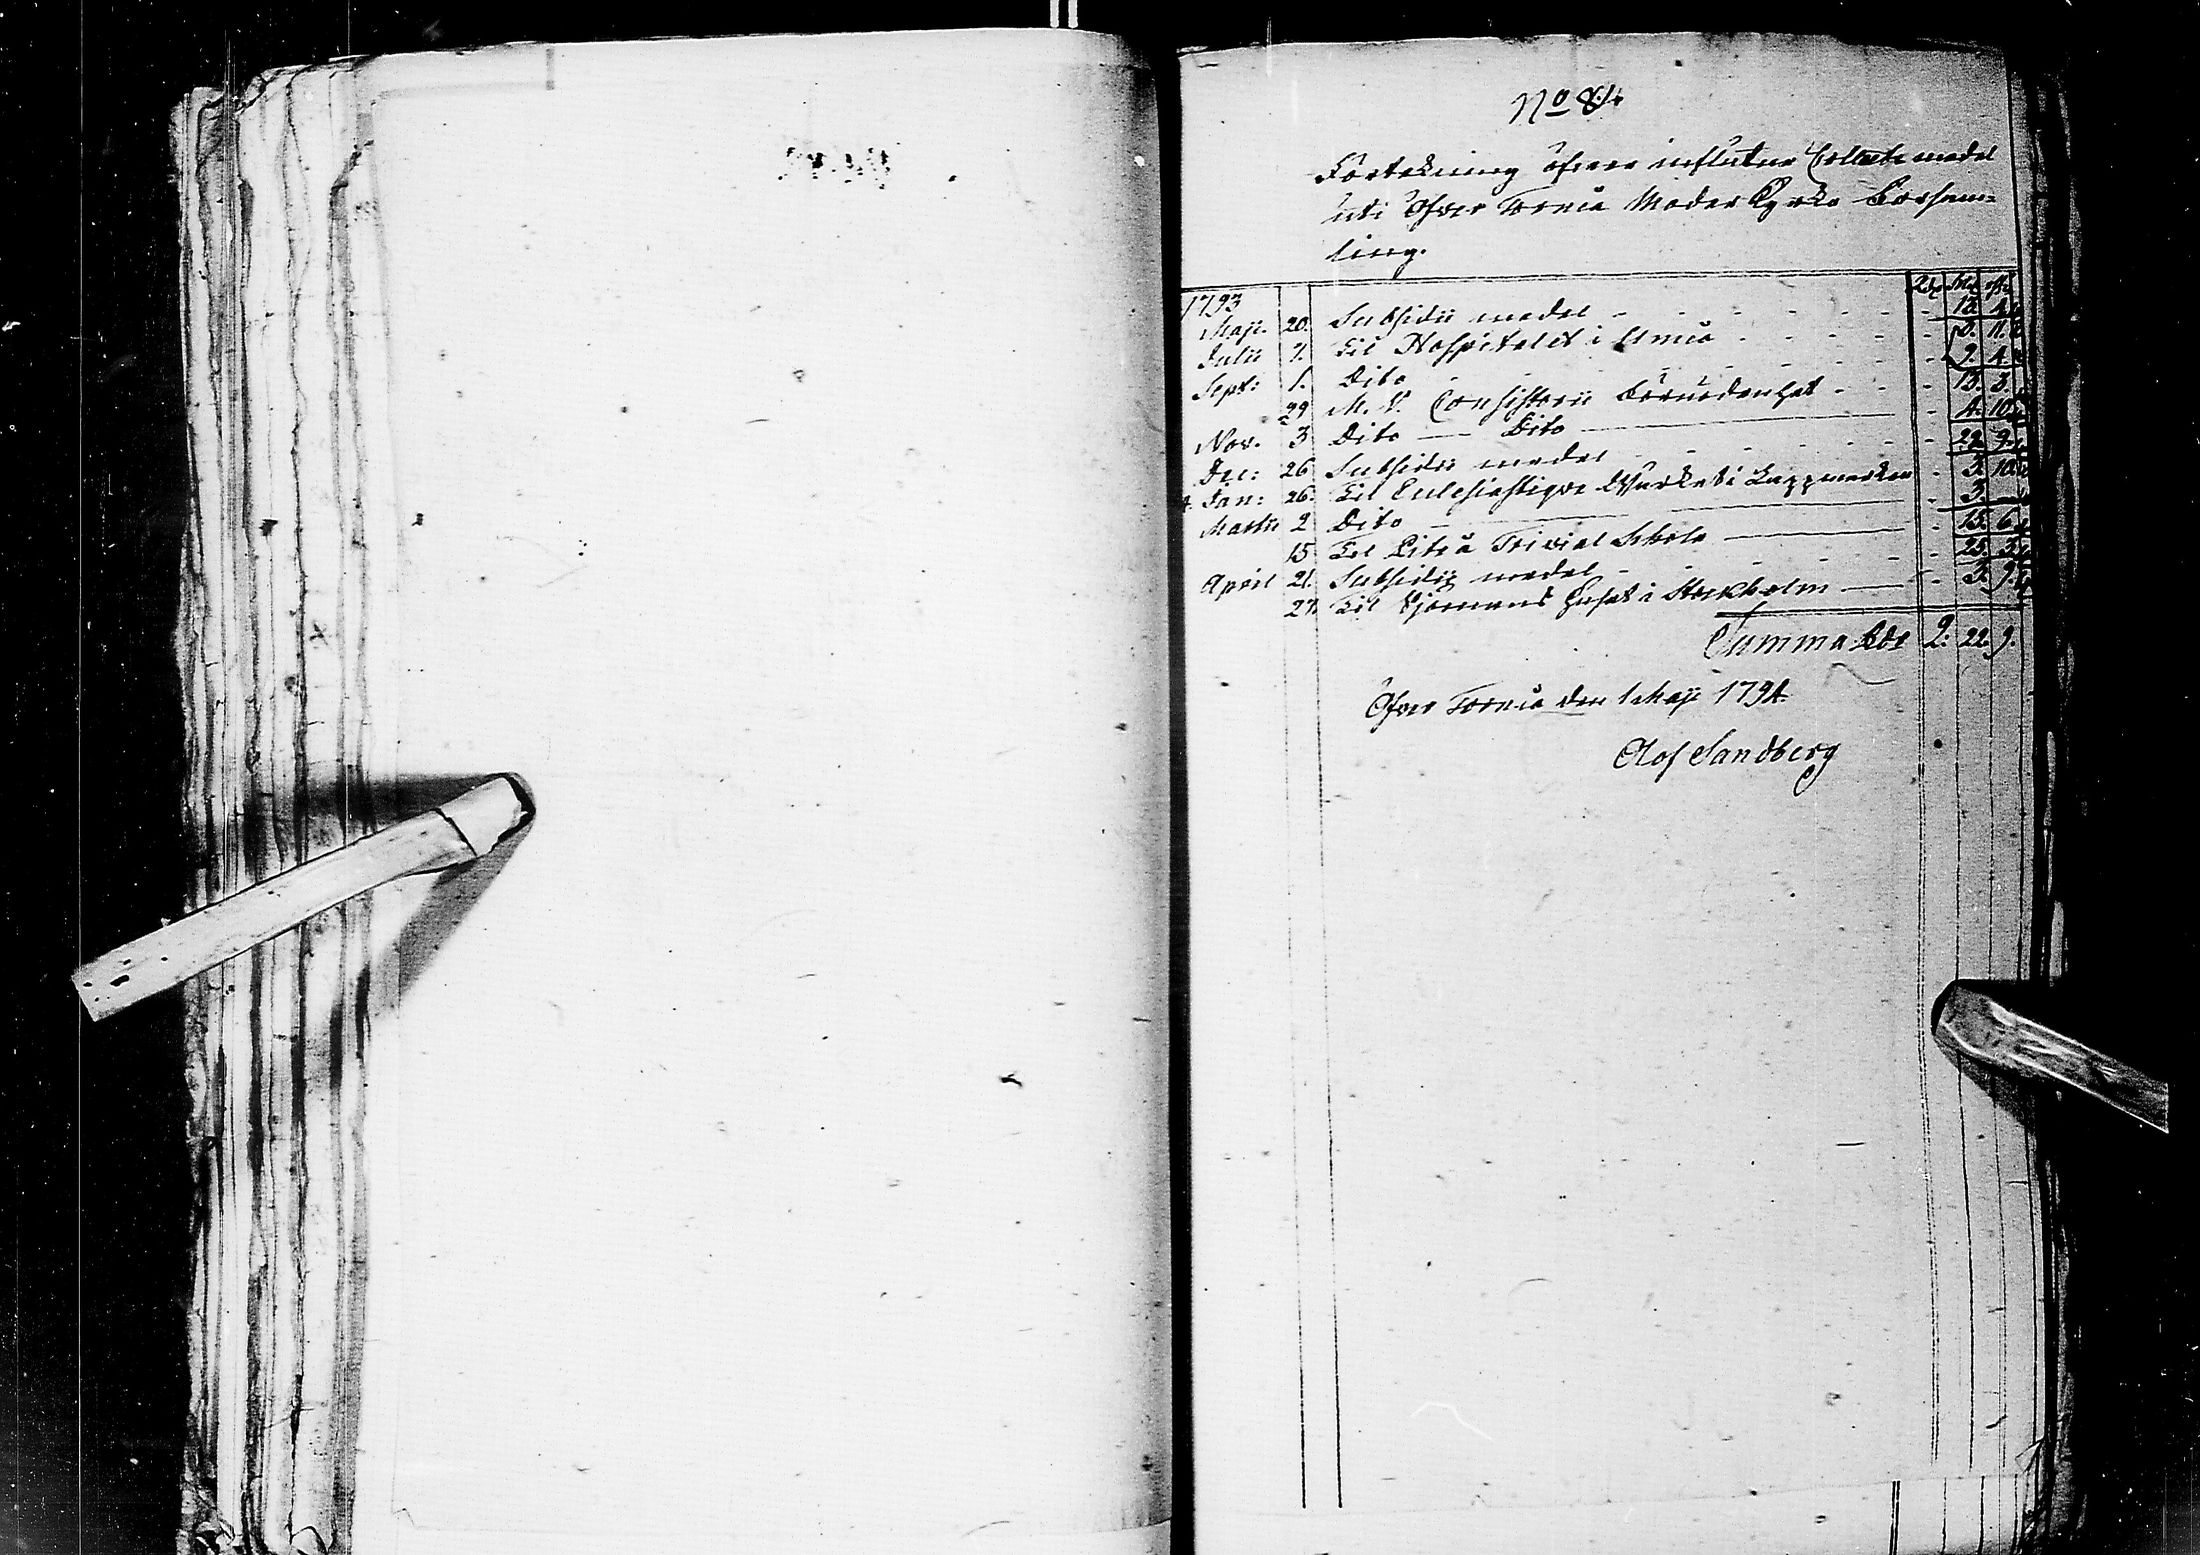 No 84
Förtekning öfwer influtne Collecte medel
uti Öfwer Torneå Moder Kyrko Försam=
ling.
Rd
1793
Maji. 20. Subsidii medel - - - - - - 12. 4
Julii 7. Til Hospitalet i Umeå - - - - 11.
Sept: 1. Dito - - - - - 4.
29 M. V. Consistorii - - - 13. 3.
Nov. 3 Dito — Dito — - 4. 10
Dec: 26 Subsidii medel - - - - - 9.
Jan: 26. Til Eclesiastique Wärket i Lappmarken - 3. 10
Martii 2 Dito — - 3. —
15 Til Piteå Trivial Schola — - 15. 6
April 21. Subsidii medel - - - - - 25. 3.
27. Til Sjömans huset i Stockholm — - 3. 9.
Summa Rdr 2: 22. 9.
Öfwer Torneå den 1 Maji 1794.
Olof Sandberg